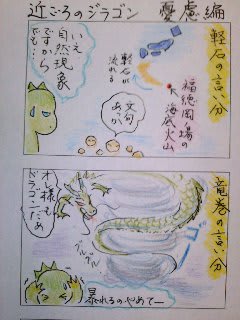 近ごろのジラゴン
憂慮編
軽石の言い分
福徳岡場の
海底火山
軽石が
流れる
文句
あっか
いえ
自然現象
ですから
でも…
竜巻の言い分
ゴー
オレ様も
ドラゴンだあ
グルグル
暴れるのやめてー